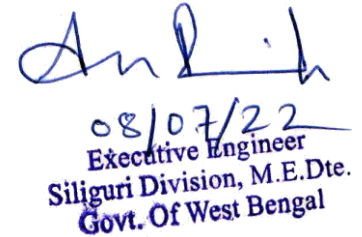 08/07/22
Executive Engineer
Siliguri Division, M.E.Dte.
Govt. Of West Bengal